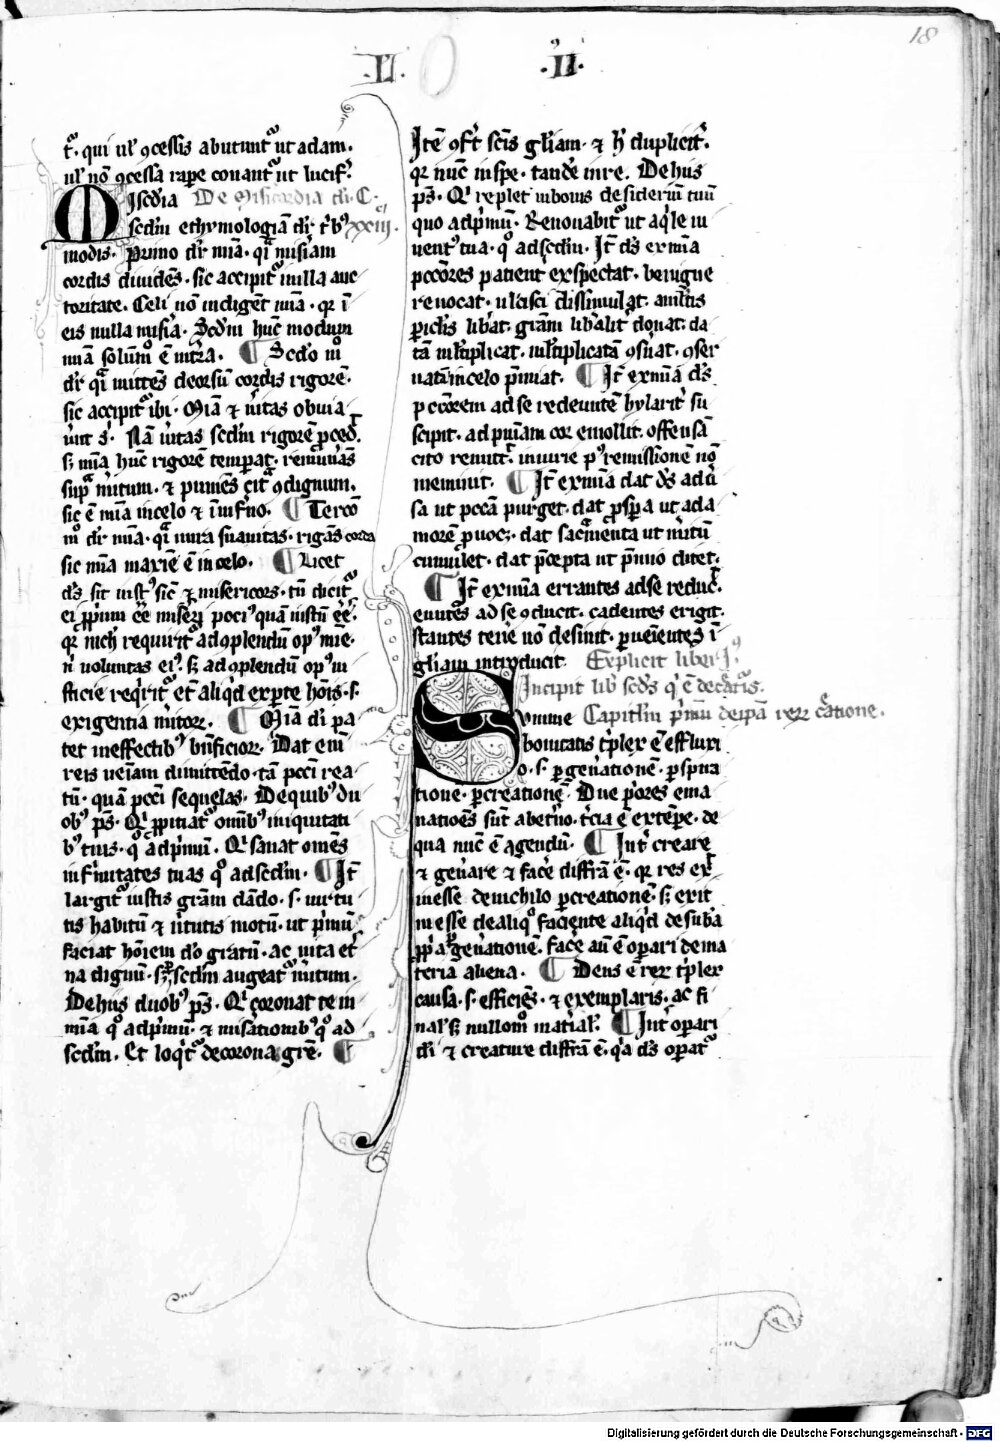 18
.II. .II.
tᷣ. qui ul' ꝯcessis abutunt᷑ ut adam.
ul' nō ꝯcessa rape conant᷑ ut lucif᷑.
Misc̄dia De misericordia di. C.
sc̄dm ethymologiā dr̄ t'bꝰ xxiij.
modis. Primo dr̄ mia. q̄ miseriam
cordis diuidēs. sic accipit᷑ in illa auc
toritate. Celi nō indigēt mia. qr ī
eis nulla miseria. Sc̄dm hūc modum
mia solūmō ē in t'ra. ¶ Sc̄do mō
dr̄ q̄ mittēs deorsū cordis rigorē.
sic accipit᷑ ibi. Mia ⁊ u'itas obuia
u'unt s'. Nā u'itas sc̄dm rigorē pced'.
s; mia hūc rigorē temperat. remun'ās
sup' m'itum. ⁊ puniēs cit' ꝯdignum.
sic ē mia in celo ⁊ ī inf'no. ¶ Tercō
mō dr̄ mia. q̄ mira suauitas. rigās corda
sic mia maxīe ē in celo. ¶ Licet
d's sit iustꝰ sic ⁊ misericors. tn̄ dicit᷑
ei ꝓprium eē miseri pociꝰ quā iustū eē.
qr nich' requirit᷑ ad ꝯplendū opꝰ mie.
n' uoluntas eiꝰ. s; ad ꝯplendū opꝰ iu
sticie req'rit᷑ et aliq'd ex pte hōis. s.
exigentia m'itor. ¶ Mia di pa
tet in effectibꝰ bn̄ficior. Dat eni
reis ueniam dimittēdo. tā pcc̄i rea
tū. quā pcc̄i sequelas. De quibꝰ du
obꝰ ps̄. Qi ꝓpitiat᷑ omībꝰ iniquitati
bꝰ tuis. q° ad p'mū. Qi sanat omēs
infirmitates tuas q° ad sc̄dm. ¶ It̄
largit᷑ iustis gr̄am dādo. s. uirtu
tis habitū ⁊ u'tutis motū. ut p'mū
faciat hōiem d'o gratū. ac uita et'
na dignū. s; sc̄dm augeat m'itum.
De hiis duobꝰ ps̄. Qi coronat te in
mia q° ad p'mū. ⁊ mis'ationibꝰ q° ad
sc̄dm. Et loq't᷑ de corona gr̄e. ¶
Itē ꝯf't sc̄is gl'iam. ⁊ h' duplicit'.
qr nūc in spe. tandē in re. De hiis
ps̄. Qi replet in bonis desideriū tuū
quo ad p'mū. Renouabit᷑ ut aq'le iu
uentꝰ tua. q° ad sc̄dm. It̄ d's ex mia
pcc̄ores patient' exspectat. benigne
reuocat. ulcisci dissimulat. a m'ltis
piclis lib'at. gr̄am lib'alit' donat. da
tā m'ltiplicat. m'ltiplicatā ꝯs'uat. ꝯser
uatā in celo p'miat. ¶ It̄ ex mia d's
pcc̄orem ad se redeuntē hylarit' su
scipit. ad p'niam cor emollit. offensā
cito remittit. iniurie pꝰ remissionē nō
meminit. ¶ It̄ ex mia dat d's adū'
sa ut pcc̄a purget. dat prosp'a ut ad a
morē ꝓuocet. dat sac'menta ut m'itū
cumulet. dat p'cepta ut p'mio ditet.
¶ It̄ ex mia errantes ad se reduc'.
euntes ad se ꝯducit. cadentes erigit.
stantes tene nō desinit. pueientes ī
gl'iam introducit Explicit liber Iꝰ.
Incipit lib' sc̄d's q' ē de c̄atis.
Summe Capitl'm p'mū de ip̄a rer c'atione.
bonitatis t'plex ē effluxi
o. s. p gen'atione. p spira
tione. p creationē. Due p'ores ema
natiōes sūt ab et'no. t'cia ē ex tēpe. de
qua nūc ē agendū. ¶ Int' creare
⁊ gen'are ⁊ fac'e diffr̄a ē. qr res exit
in esse de nichilo p creationē. s; exit
in esse de aliq° faciente aliq'd de suba
ꝓp'a p gen'ationē. fac'e au' ē op'ari de ma
teria aliena. ¶ Deus ē rer t'plex
causa. s. efficiēs. ⁊ exemplaris. ac fi
nal'. s; nullo m° mat'ial'. ¶ Int' op'ari
di ⁊ creature diffr̄a ē. q'a d's op'at᷑
Digitalisierung gefördert durch die Deutsche Forschungsgemeinschaft - DFG